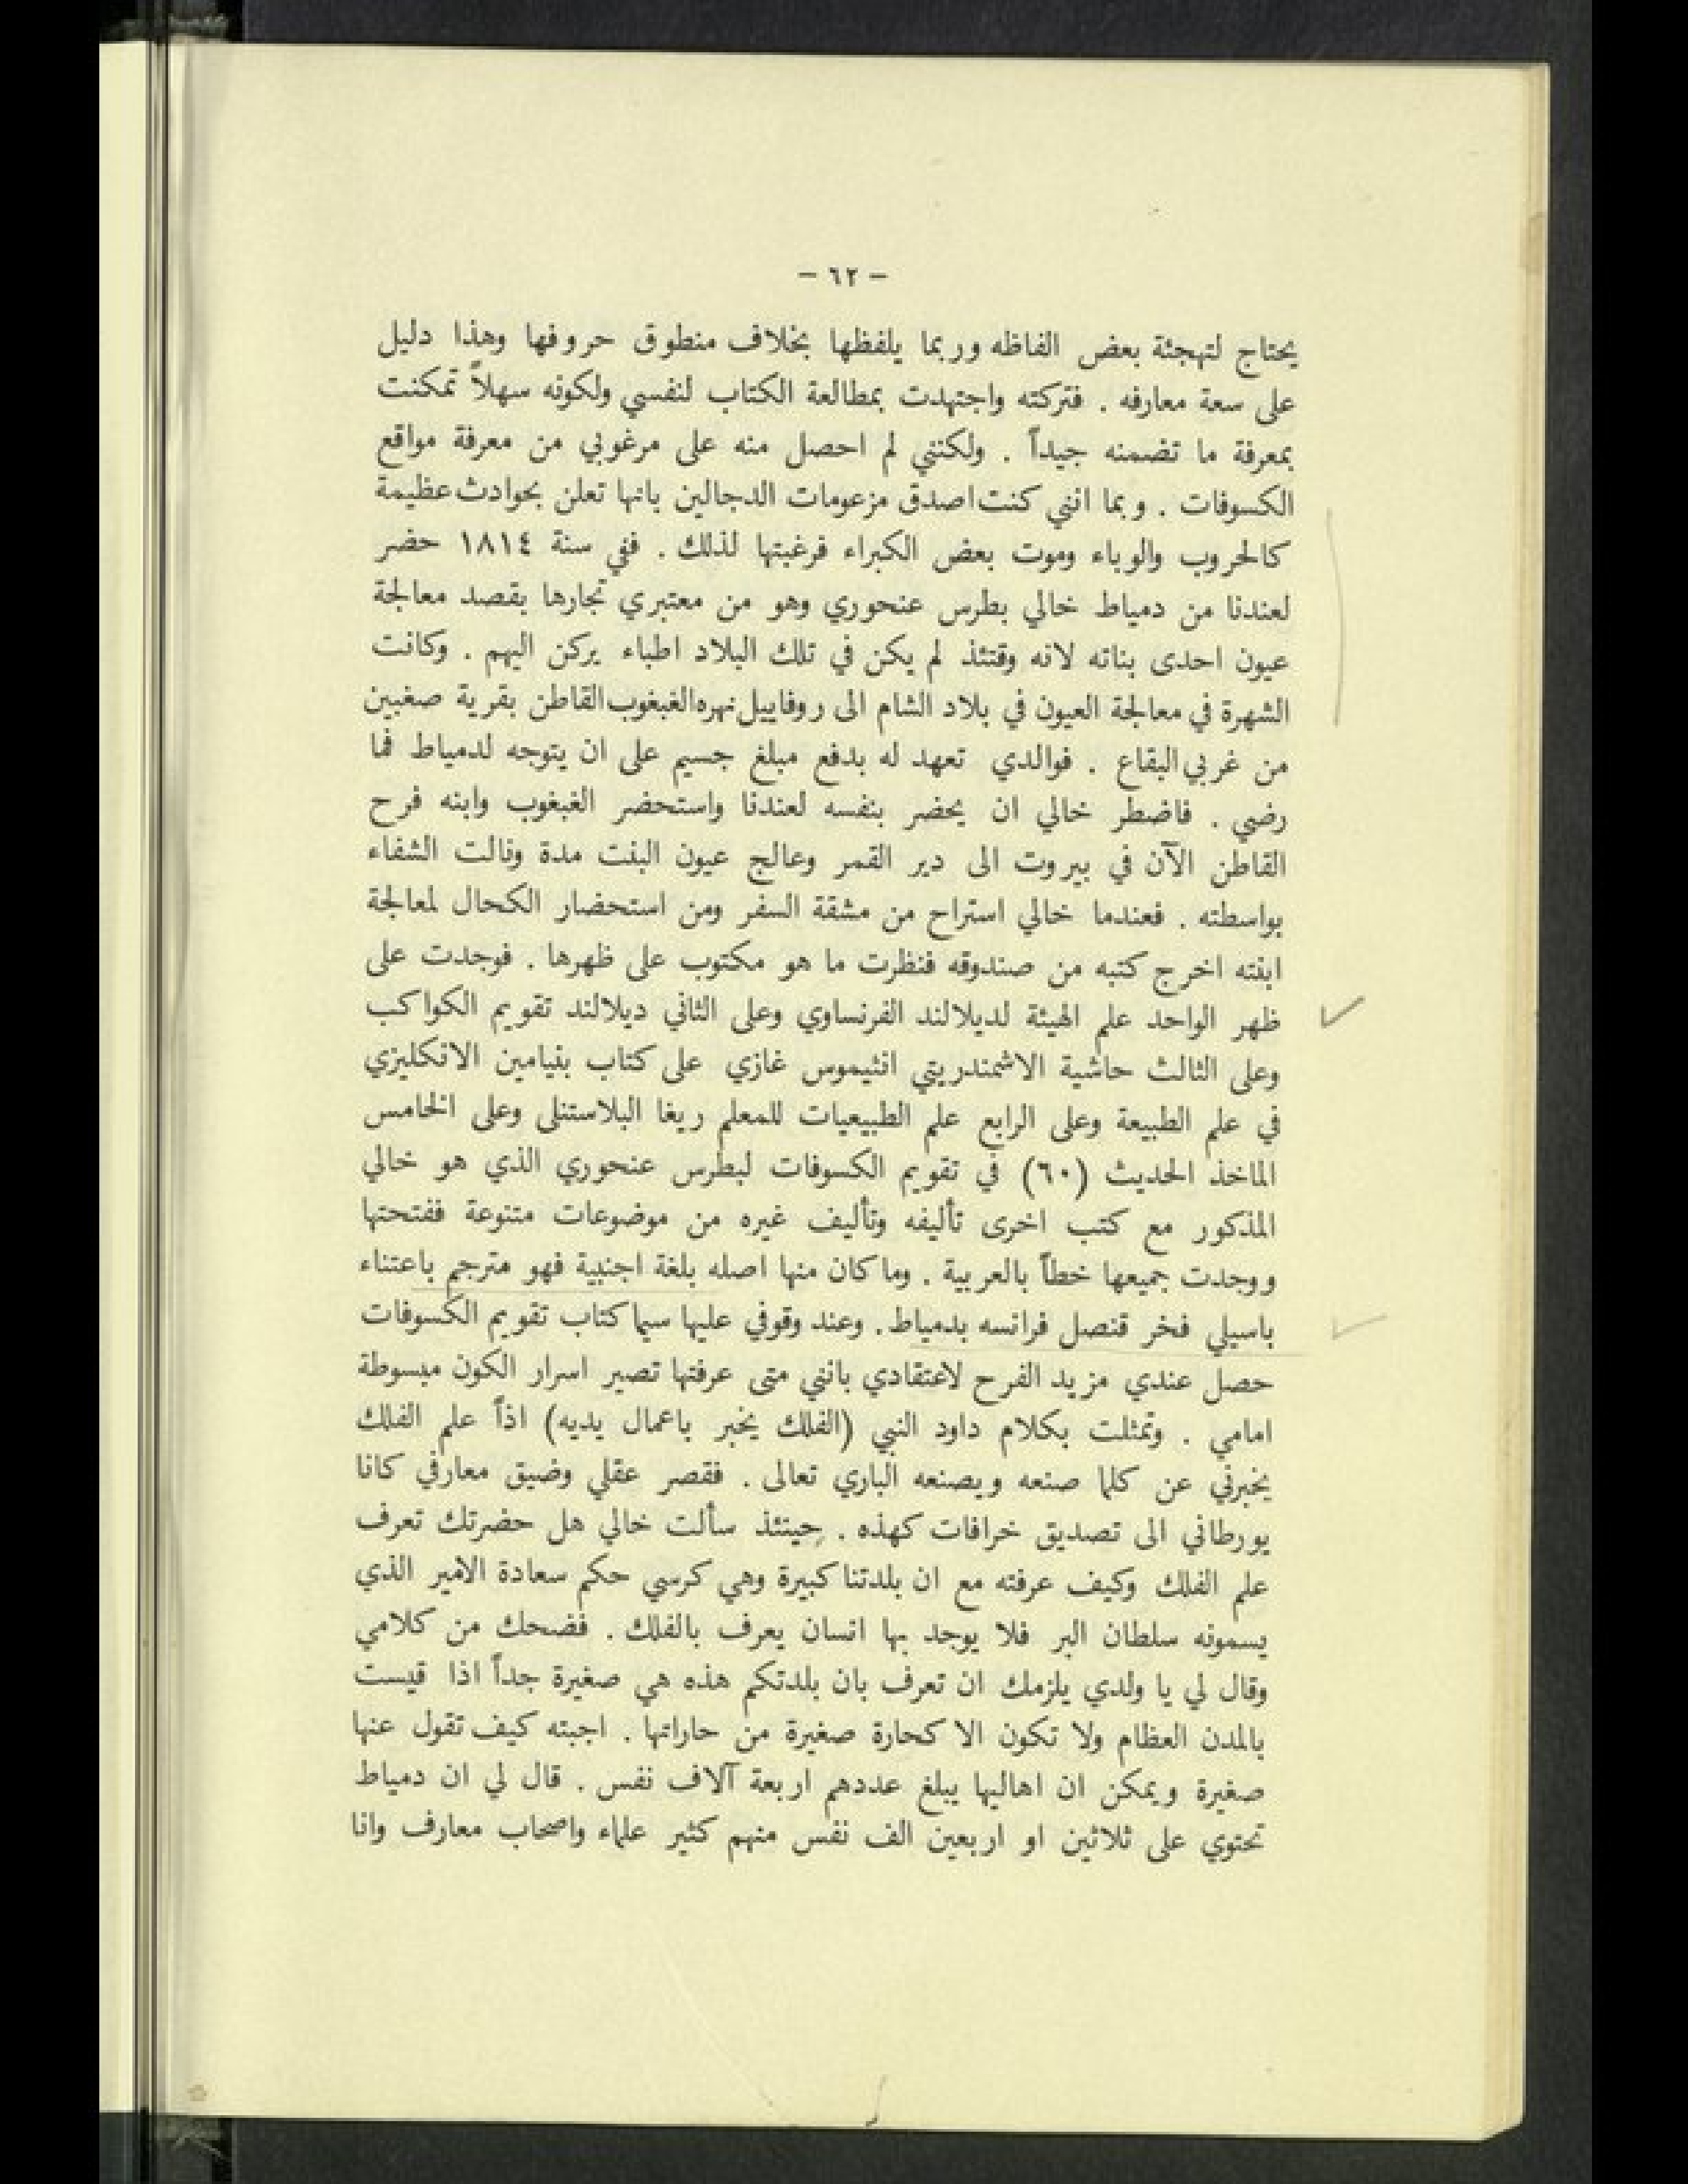 - ٦٢ -
يحتاج لتهجئة بعض الفاظه وربما يلفظها بخلاف منطوق حروفها وهذا دليل
على سعة معارفه . فتركته واجتهدت بمطالعة الكتاب لنفسي ولكونه سهلاً تمكنت
بمعرفة ما تضمنه جيداً . ولكنني لم احصل منه على مرغوبي من معرفة مواقع
الكسوفات . وبما انني كنت اصدق مزعومات الدجالين بانها تعلن بحوادث عظيمة
كالحروب والوباء وموت بعض الكبراء فرغبتها لذلك . ففي سنة ١٨١٤ حضر
لعندنا من دمياط خالي بطرس عنحوري وهو من معتبري تجارها بقصد معالجة
عيون احدى بناته لانه وقتئذ لم يكن في تلك البلاد اطباء يركن اليهم . وكانت
الشهرة في معالجة العيون في بلاد الشام الى روفاييل نهره الغبغوب القاطن بقرية صغبين
من غربي البقاع . فوالدي تعهد له بدفع مبلغ جسيم على ان يتوجه لدمياط فما
رضي . فاضطر خالي ان يحضر بنفسه لعندنا واستحضر الغبغوب وابنه فرح
القاطن الآن في بيروت الى دير القمر وعالج عيون البنت مدة ونالت الشفاء
بواسطته . فعندما خالي استراح من مشقة السفر ومن استحضار الكحال لمعالجة
ابنته اخرج كتبه من صندوقه فنظرت ما هو مكتوب على ظهرها . فوجدت على
ظهر الواحد علم الهيئة لديلالند الفرنساوي وعلى الثاني ديلالند تقويم الكواكب
وعلى الثالث حاشية الاشمندريتي انثيموس غازي على كتاب بنيامين الانكليزي
في علم الطبيعة وعلى الرابع علم الطبيعيات للمعلم ريغا البلاستنلى وعلى الخامس
الماخذ الحديث (٦٠) في تقويم الكسوفات لبطرس عنحوري الذي هو خالي
المذكور مع كتب اخرى تأليفه وتأليف غيره من موضوعات متنوعة ففتحتها
ووجدت جميعها خطاً بالعربية . وما كان منها اصله بلغة اجنبية فهو مترجم باعتناء
باسيلي فخر قنصل فرانسه بدمياط . وعند وقوفي عليها سيما كتاب تقويم الكسوفات
حصل عندي مزيد الفرح لاعتقادي بانني متى عرفتها تصير اسرار الكون مبسوطة
امامي . وتمثلت بكلام داود النبي (الفلك يخبر باعمال يديه) اذاً علم الفلك
يخبرني عن كلما صنعه ويصنعه الباري تعالى . فقصر عقلي وضيق معارفي كانا
يورطاني الى تصديق خرافات كهذه . حينئذ سألت خالي هل حضرتك تعرف
علم الفلك وكيف عرفته مع ان بلدتنا كبيرة وهي كرسي حكم سعادة الامير الذي
يسمونه سلطان البر فلا يوجد بها انسان يعرف بالفلك . فضحك من كلامي
وقال لي يا ولدي يلزمك ان تعرف بان بلدتكم هذه هي صغيرة جداً اذا قيست
بالمدن العظام ولا تكون الا كحارة صغيرة من حاراتها . اجبته كيف تقول عنها
صغيرة ويمكن ان اهاليها يبلغ عددهم اربعة آلاف نفس . قال لي ان دمياط
تحتوي على ثلاثين او اربعين الف نفس منهم كثير علماء واصحاب معارف وانا